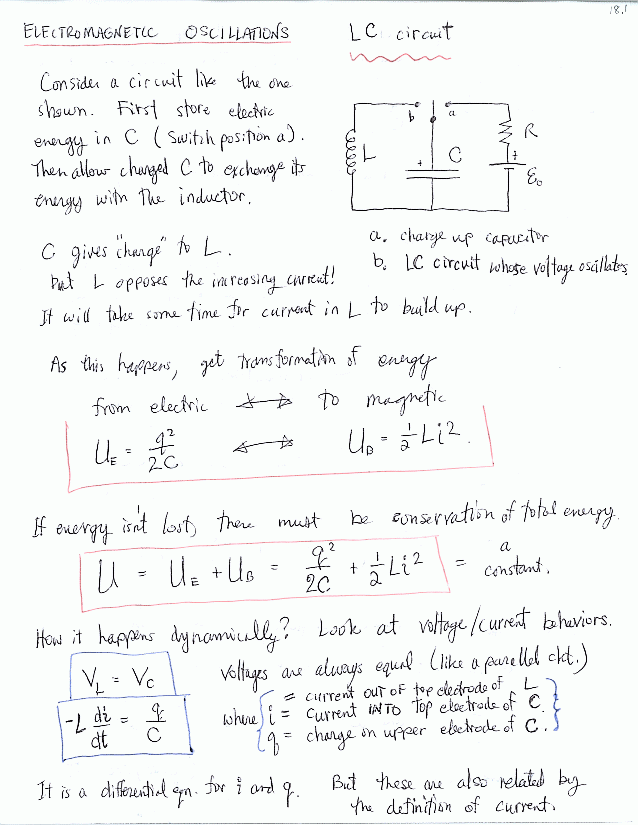 18.1
ELECTROMAGNETIC OSCILLATIONS LC circuit
Consider a circuit like the one
shown. First store electric
energy in C (switch position a).
Then allow charged C to exchange its
energy with the inductor.
b a
L + C R
+ Ɛ₀
a. charge up capacitor
b. LC circuit whose voltage oscillates
C gives "charge" to L.
but L opposes the increasing current!
It will take some time for current in L to build up.
As this happens, get transformation of energy
from electric ↔ to magnetic
U_E = q²/2C ↔ U_B = ½Li².
If energy isn't lost, there must be conservation of total energy.
U = U_E + U_B = q²/2C + ½Li² = a constant.
How it happens dynamically? Look at voltage/current behaviors.
V_L = V_C Voltages are always equal (like a parallel ckt.)
-L di/dt = q/C
= current OUT OF top electrode of L
where i = current INTO top electrode of C.
q = charge on upper electrode of C.
It is a differential eqn. for i and q. But these are also related by
the definition of current.